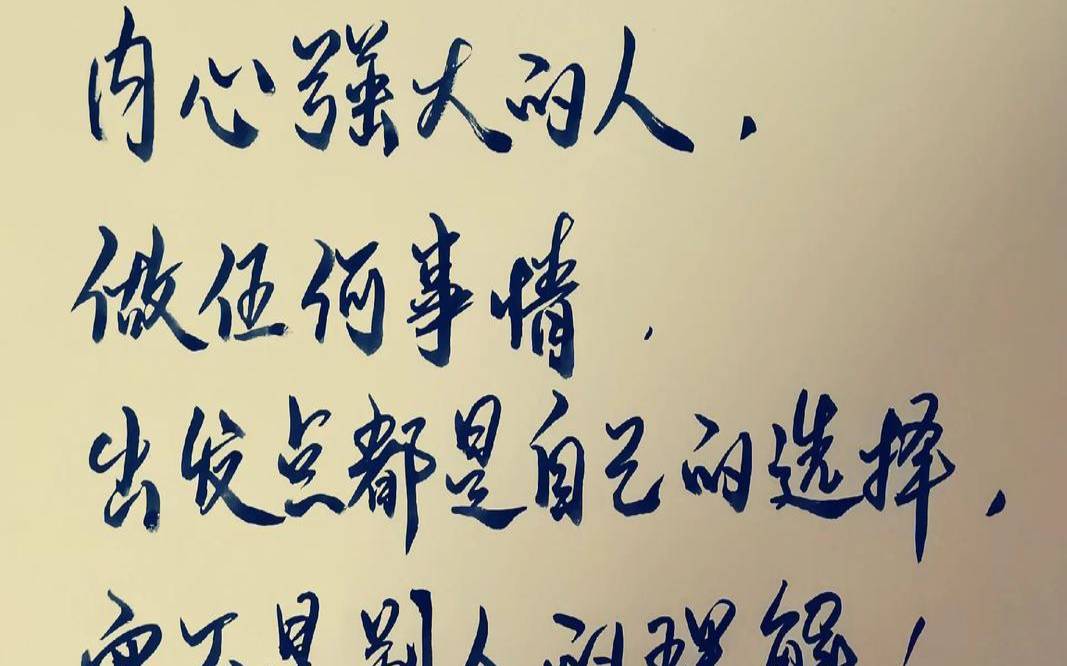 内心强大的人，
做任何事情，
出发点都是自己的选择，
而不是别人的理解！